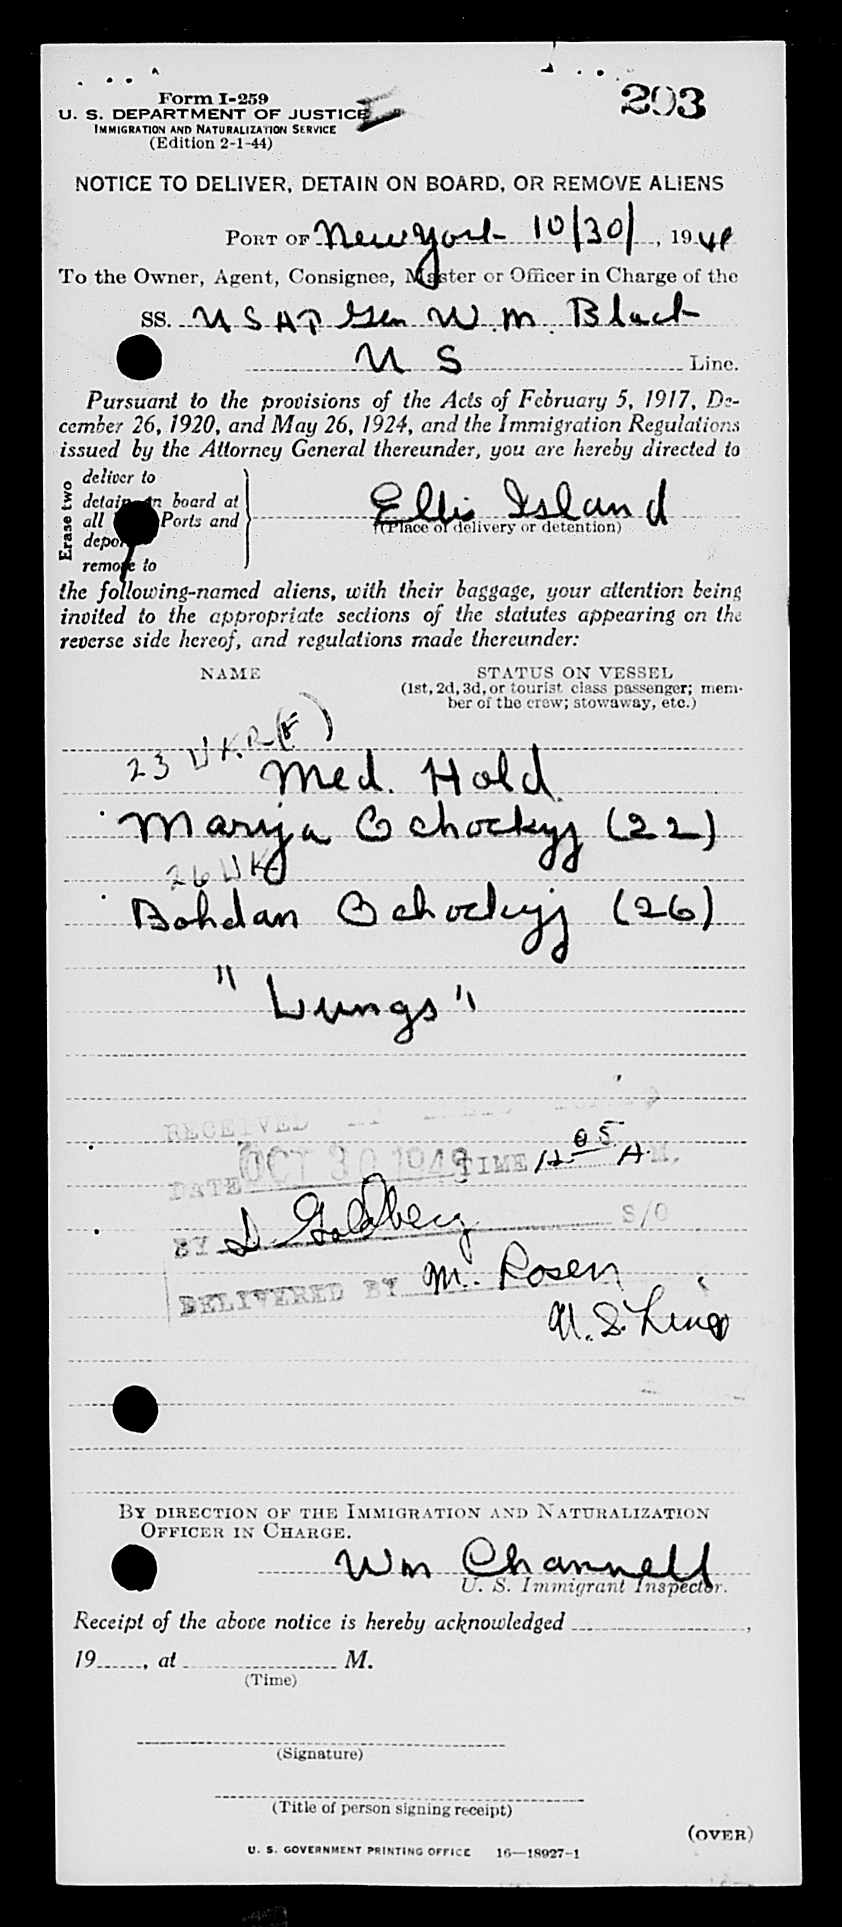 Form I-259
U. S. DEPARTMENT OF JUSTICE
IMMIGRATION AND NATURALIZATION SERVICE
(Edition 2-1-44)
203
NOTICE TO DELIVER, DETAIN ON BOARD, OR REMOVE ALIENS
PORT OF New York 10/30/, 1948
To the Owner, Agent, Consignee, Master or Officer in Charge of the
SS. USAT Gen W. M. Black
U S Line.
Pursuant to the provisions of the Acts of February 5, 1917, De-
cember 26, 1920, and May 26, 1924, and the Immigration Regulations
issued by the Attorney General thereunder, you are hereby directed to
Erase two
deliver to
detain on board at
all Ports and
remove to
Ellis Island
(Place of delivery or detention)
the following-named aliens, with their baggage, your attention being
invited to the appropriate sections of the statutes appearing on the
reverse side hereof, and regulations made thereunder:
NAME STATUS ON VESSEL
(1st, 2d, 3d, or tourist class passenger; mem-
ber of the crew; stowaway, etc.)
23
Med. Hold
Marija Ochockyj (22)
26 UK
Bohdan Ochockyj (26)
"Lungs"
RECEIVED
DATE OCT 30 1948 TIME 12 05 A M.
BY D. Goldberg S/O
DELIVERED BY M. Rosen
U.S. Lines
BY DIRECTION OF THE IMMIGRATION AND NATURALIZATION
OFFICER IN CHARGE.
Wm Channell
U. S. Immigrant Inspector.
Receipt of the above notice is hereby acknowledged ,
19 , at M.
(Time)
(Signature)
(Title of person signing receipt)
(OVER)
U. S. GOVERNMENT PRINTING OFFICE 16—18927-1